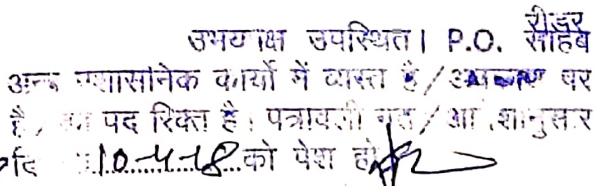 रीडर
उभयपक्ष उपस्थित। P.O. साहिब
अन्य प्रशासनिक कार्यों में व्यस्त है/अवकाश पर
है/ का पद रिक्त है। पत्रावली /आदेशानुसार
10-4-18 को पेश हो